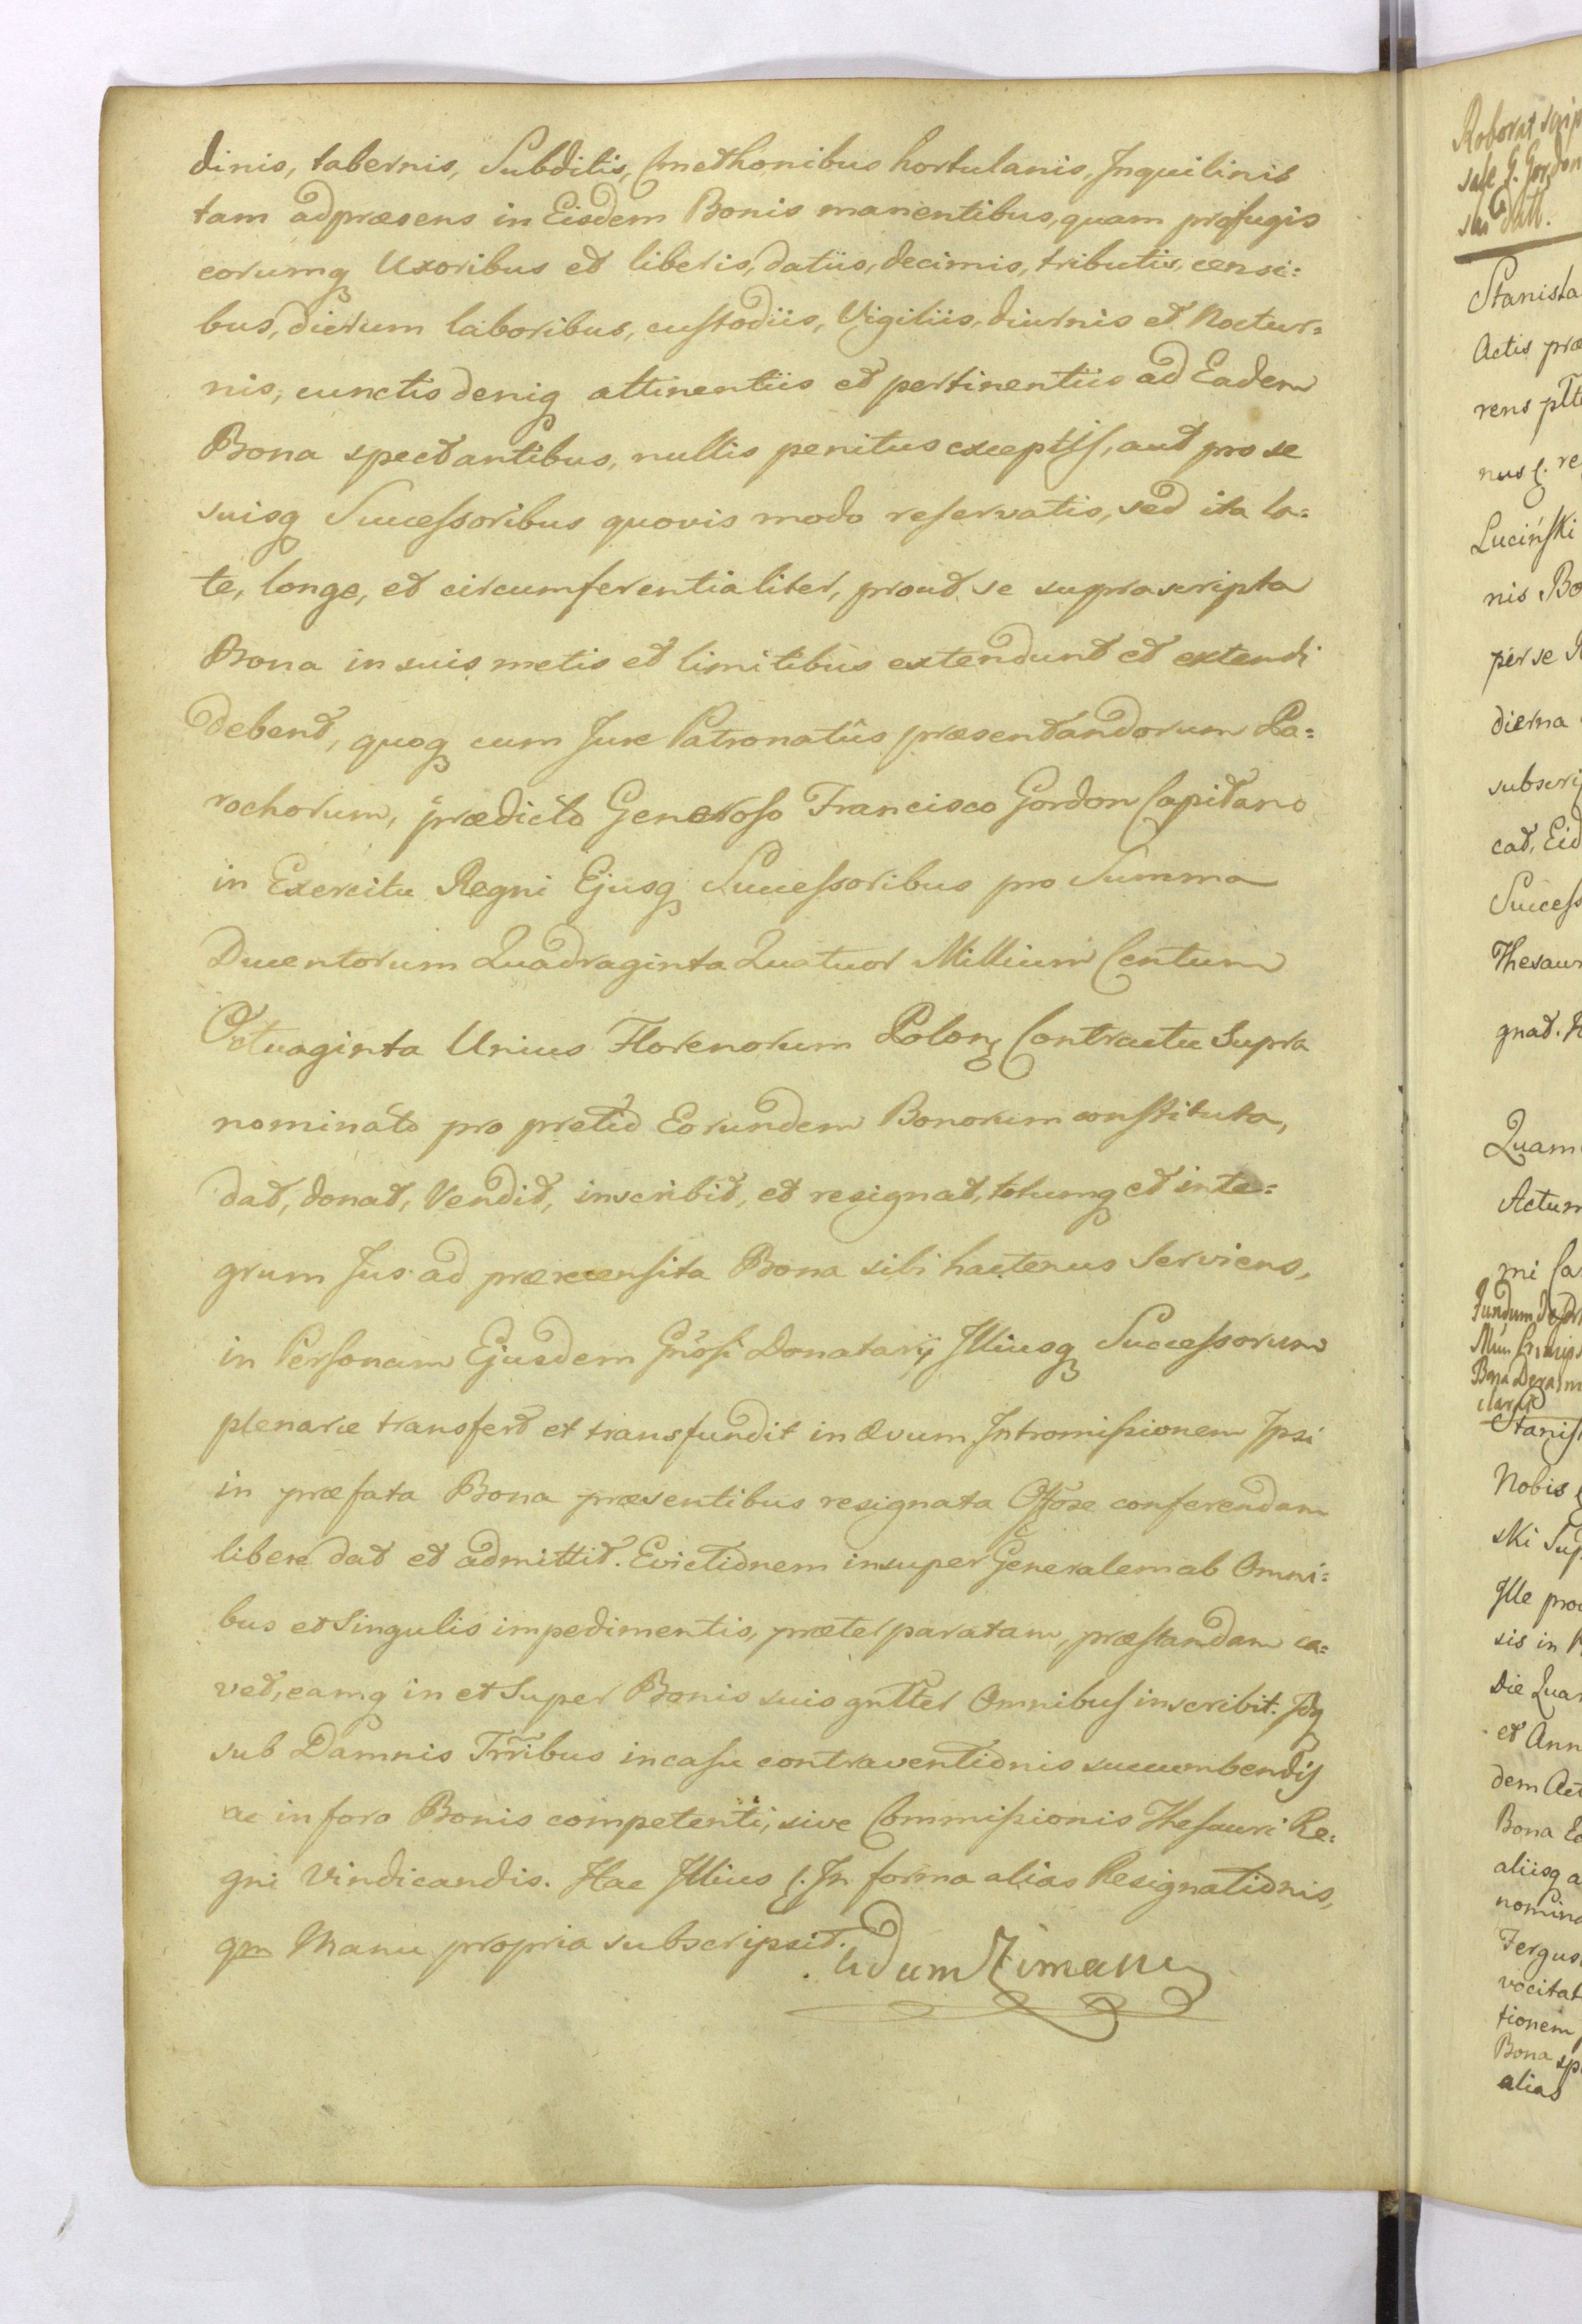 dinis, tabernis, Subditis, Cmethonibus hortulanis, Inquilinis
tam ad præsens in Eisdem Bonis manentibus, quam profugis
eorumq Uxoribus et liberis, datiis, decimis, tributis, censi=
bus, dierum laboribus, custodiis, Vigiliis, diurnis et Noctur=
nis, cunctis deniq attinentiis et pertinentiis ad Eadem
Bona spectantibus, nullis penitus exceptis, aut pro se
suisq Successoribus quovis modo reservatis, sed ita la=
te, longe, et circumferentialiter, prout se suprascripta
Bona in suis metis et limitibus extendunt et extendi
debent, quoq cum Jure Patronatûs præsentandorum Pa=
rochorum, prædicto Generoso Francisco Gordon Capitaneo
in Exercitu Regni Ejusq Successoribus pro Summa
Ducentorum Quadraginta Quatuor Millium Centum
Octuaginta Unius Florenorum Polon Contractu Supra
nominato pro pretio Eorundem Bonorum constituta,
dat, donat, Vendit, inscribit, et resignat, totumq et inte=
grum Jus ad præcensita Bona sibi hactenus Serviens,
in Personam Ejusdem Gnosi Donatarij Illiusq Successorum
plenarie transfert et transfundit in ævum, Intromissionem Ipsi
in præfata Bona præsentibus resignata Offose conferendam
libere dat et admittit. Evictionem insuper Generalem ab Omni=
bus et Singulis impedimentis, præter paratam, præstandam ca=
vet, eamq in et Super Bonis suis gntter Omnibus inscribit. Idq
sub Damnis Trribus in casu contraventionis succumbendis
ac in foro Bonis competenti, sive Commissionis Thesauri Re=
gni Vindicandis. Hac Illius f. In forma alias Resignationis,
qm Manu propria subscripsit.
Adam Zimann
Stanisla
Actis præ
rens
nus f. re
Luciński
nis Bo
per se
dierna
subscri
cat, Eid
Success
Thesaur
gnat.
Quam
Actum
mi Ca
Stanis
Nobis
ski Sup
Ille pro
sis in
Die Qua
et Ann
dem Act
Bona
aliisq a
nomina
Fergus
vocitat
tionem
Bona sp
alias